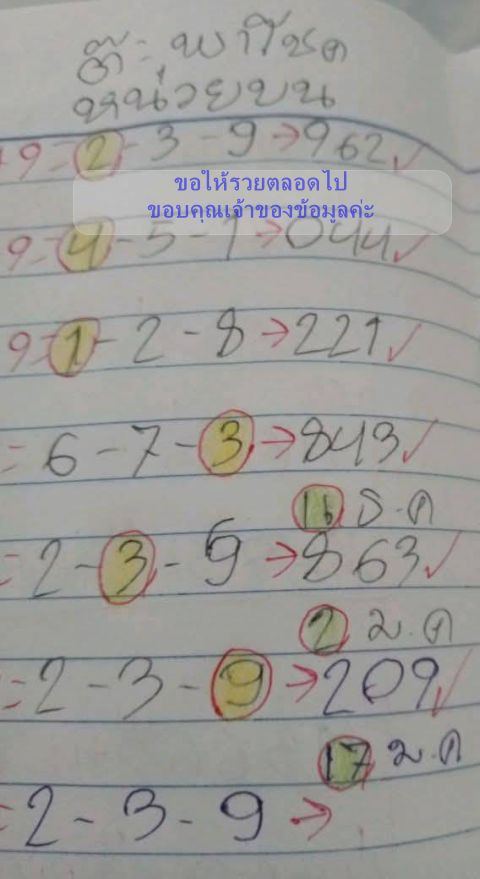 ต๊ะ พาโชค
หน่วยบน
9=2-3-9→962✓
ขอให้รวยตลอดไป
ขอบคุณเจ้าของข้อมูลค่ะ
9=4-5-1→044✓
9=1-2-8→221✓
=6-7-3→843✓
16 ธ.ค
=2-3-9→863✓
2 ม.ค
=2-3-9→209✓
17 ม.ค
=2-3-9→